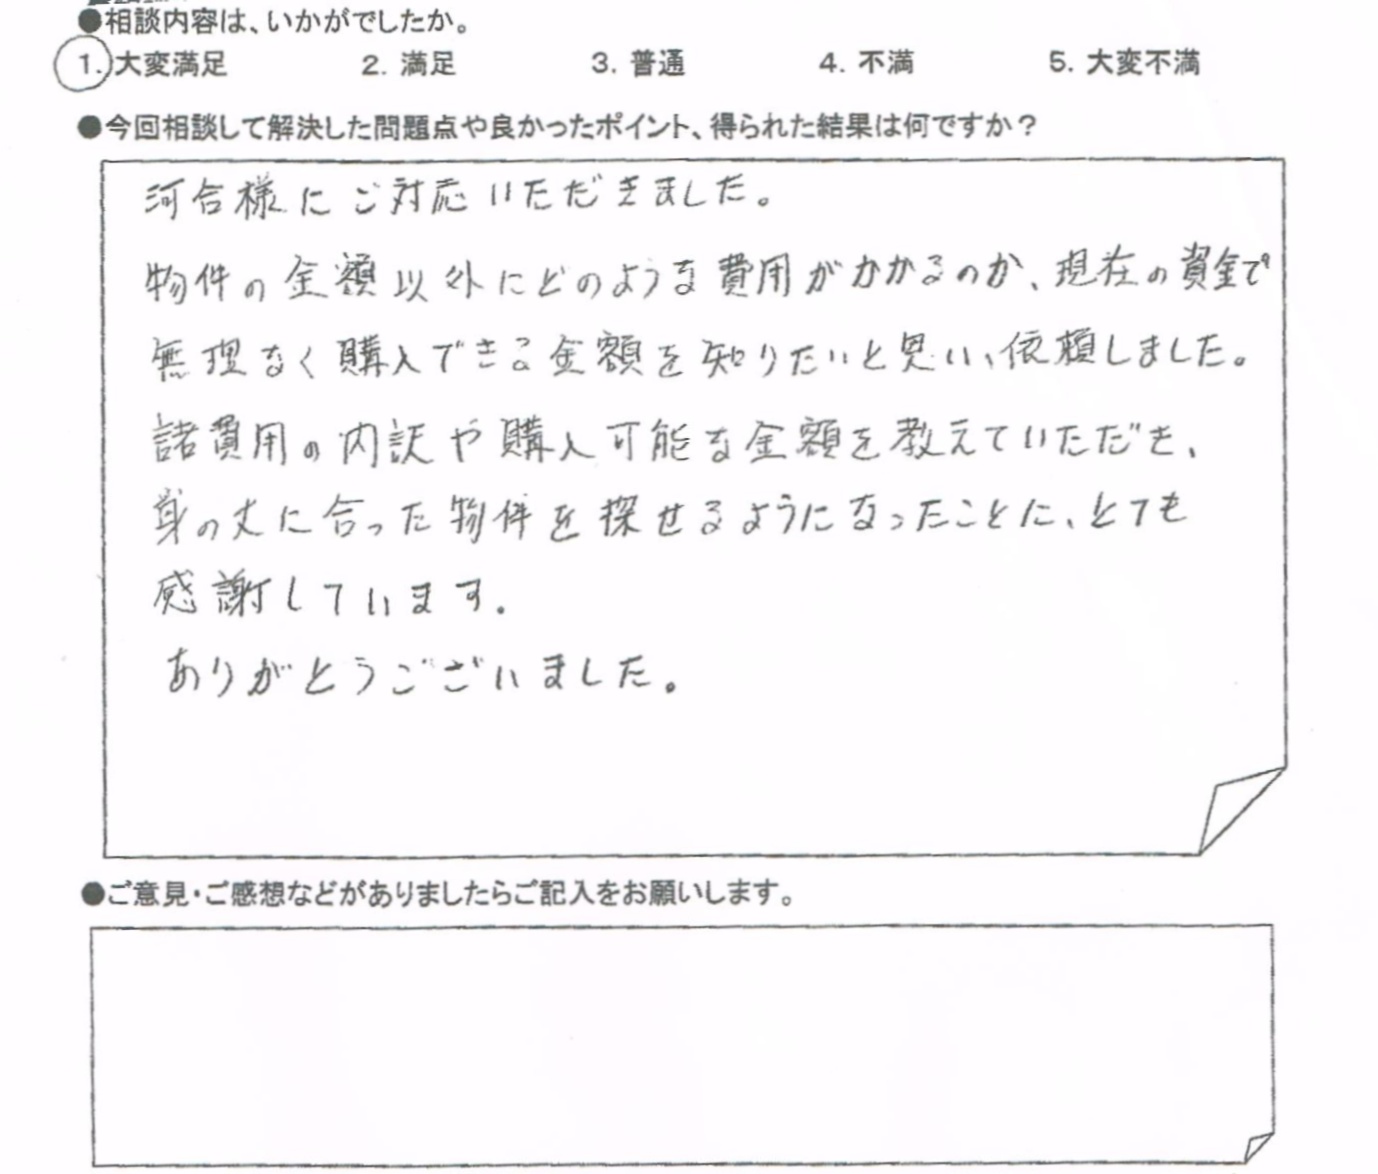 ●相談内容は、いかがでしたか。
1. 大変満足 2. 満足 3. 普通 4. 不満 5. 大変不満
●今回相談して解決した問題点や良かったポイント、得られた結果は何ですか？
河合様にご対応いただきました。
物件の金額以外にどのような費用がかかるのか、現在の資金で
無理なく購入できる金額を知りたいと思い、依頼しました。
諸費用の内訳や購入可能な金額を教えていただき、
身の丈に合った物件を探せるようになったことに、とても
感謝しています。
ありがとうございました。
●ご意見・ご感想などがありましたらご記入をお願いします。